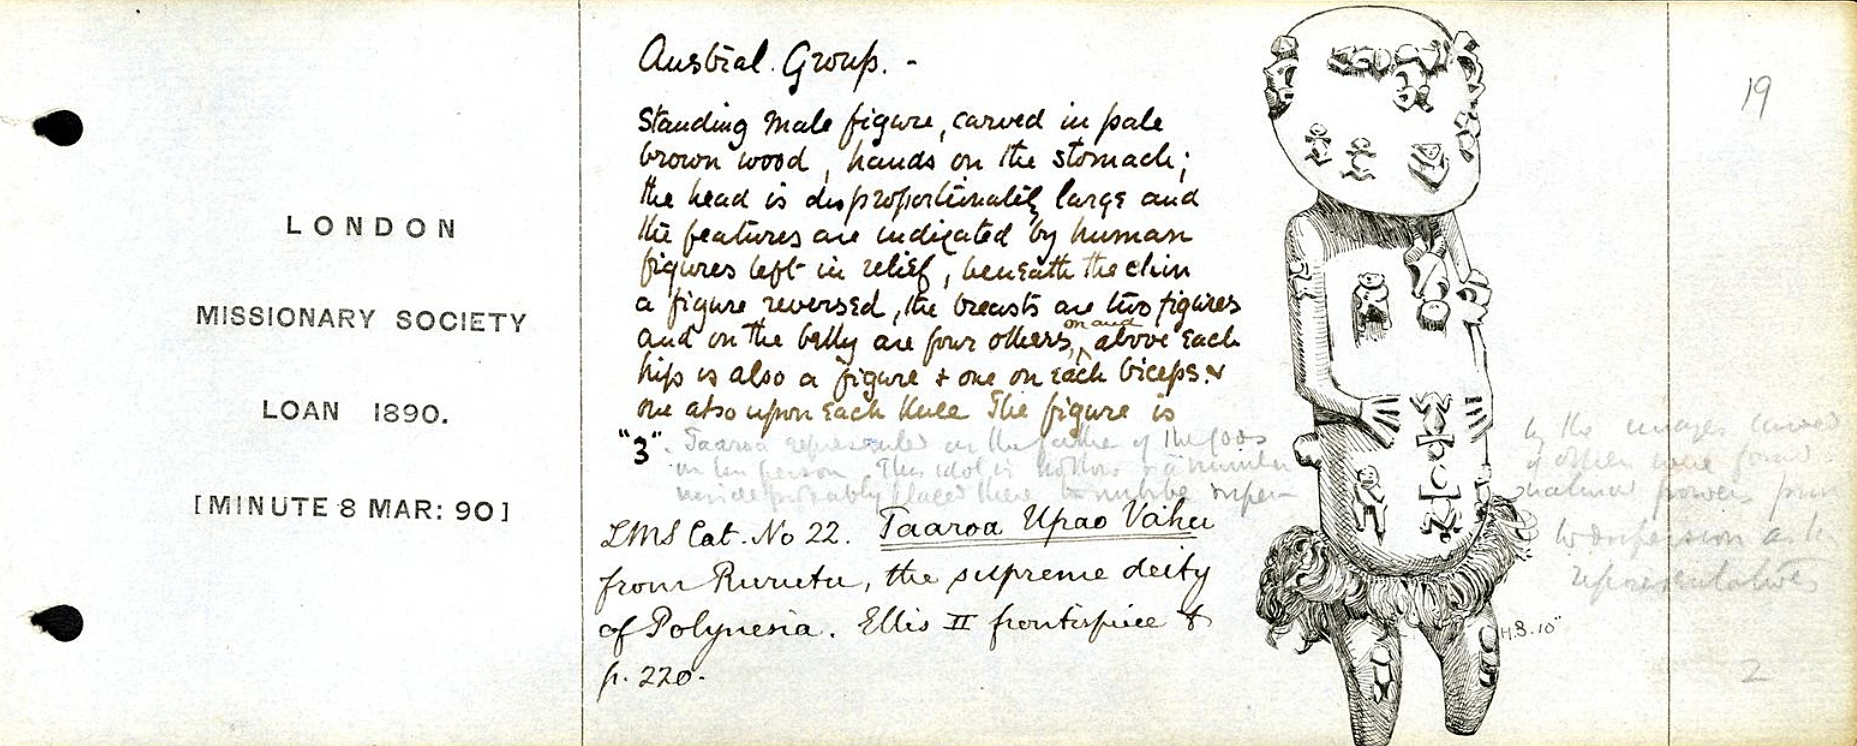 LONDON
MISSIONARY SOCIETY
LOAN 1890.
[MINUTE 8 MAR: 90]
Austral. Group. -
Standing male figure, carved in pale
brown wood, hands on the stomach;
the head is disproportionately large and
the features are indicated by human
figures left in relief, beneath the chin
a figure reversed, the breasts are two figures
and on the belly are four others, on and above each
hip is also a figure & one on each biceps. &
one also upon each knee The figure is
"3". Taaroa represented as the father of the gods
in his person. This idol is hollow & a number
inside probably placed there to imbibe super-
LMS Cat. No 22. Taaroa Upao Vahu
from Rurutu, the supreme deity
of Polynesia. Ellis II frontispiece &
p. 220.
by the images carved
of others were found
natural powers from
to dispersion as
representatives
H. 3. 10"
19
2